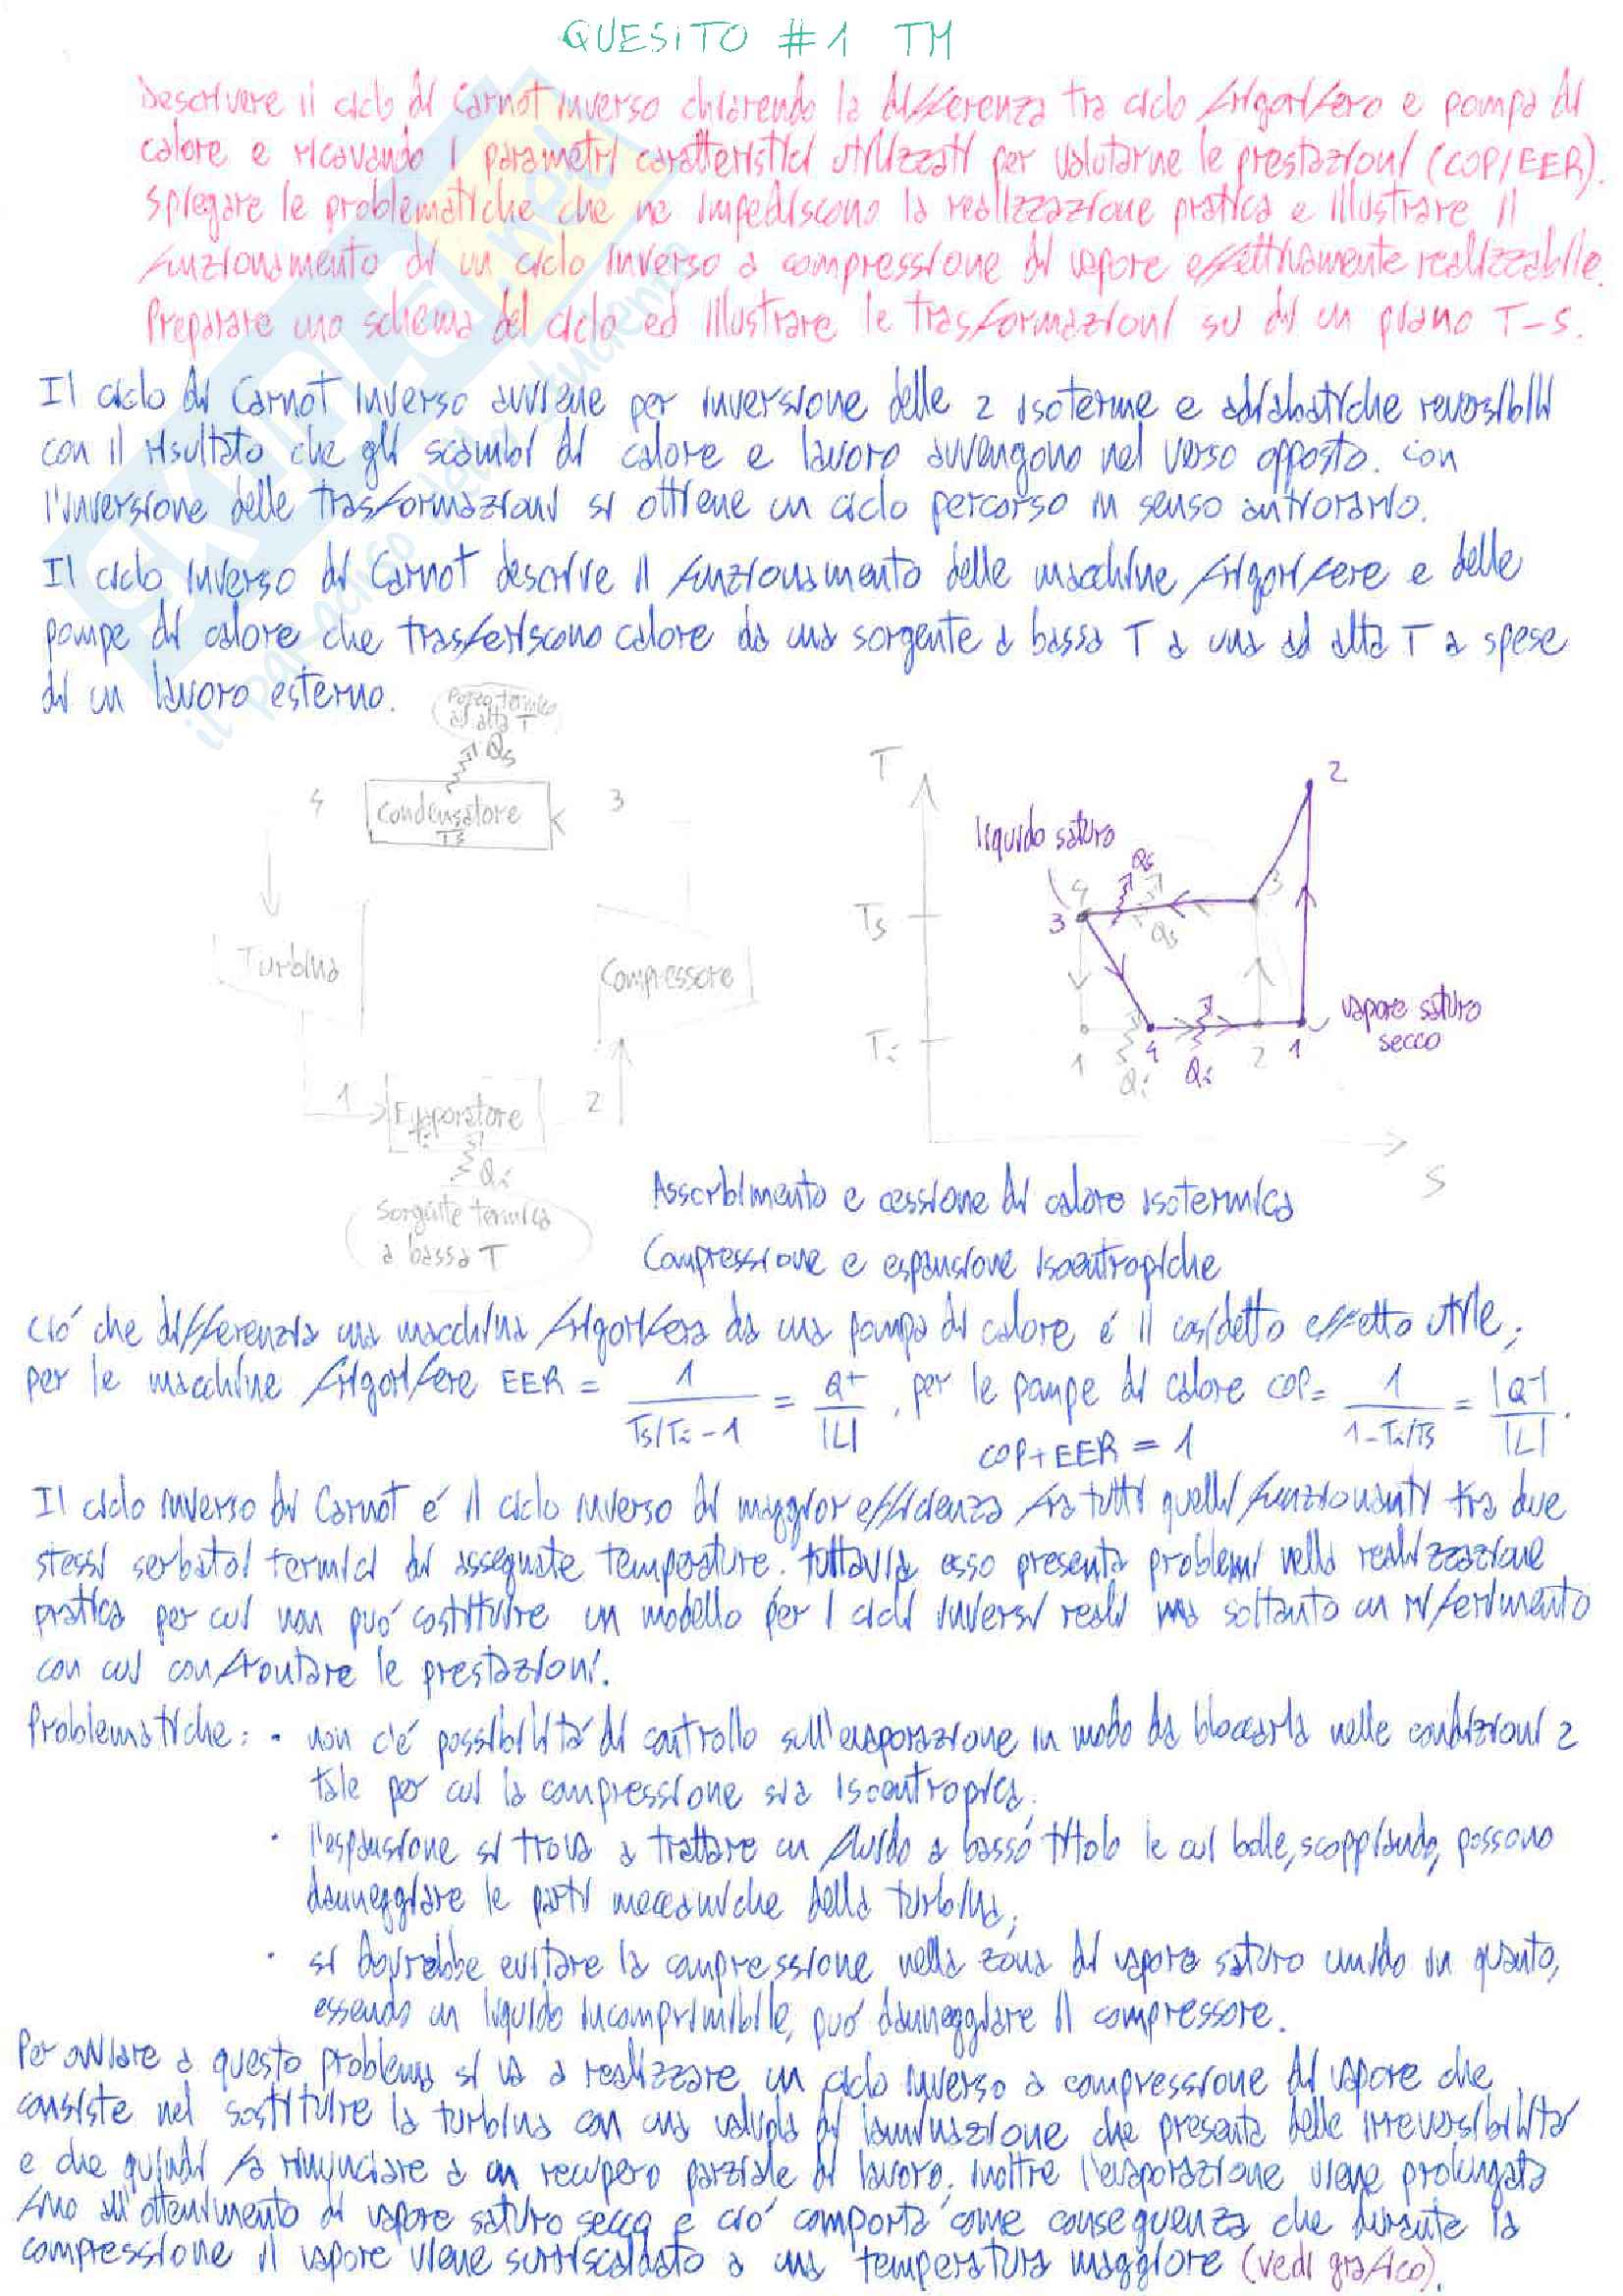 QUESITO #1 TM
Descrivere il ciclo di Carnot inverso chiarendo la differenza tra ciclo frigorifero e pompa di
calore e ricavando i parametri caratteristici utilizzati per valutarne le prestazioni (COP/EER).
Spiegare le problematiche che ne impediscono la realizzazione pratica e illustrare il
funzionamento di un ciclo inverso a compressione di vapore effettivamente realizzabile.
Preparare uno schema del ciclo ed illustrare le trasformazioni su di un piano T-S.
Il ciclo di Carnot inverso avviene per inversione delle 2 isoterme e adiabatiche reversibili
con il risultato che gli scambi di calore e lavoro avvengono nel verso opposto. Con
l'inversione delle trasformazioni si ottiene un ciclo percorso in senso antiorario.
Il ciclo inverso di Carnot descrive il funzionamento delle macchine frigorifere e delle
pompe di calore che trasferiscono calore da una sorgente a bassa T a una ad alta T a spese
di un lavoro esterno.
Pozzo termico
ad alta T
Qs
4
Condensatore
Ts
3
Turbina
Compressore
1
Evaporatore
Ti
2
Qi
Sorgente termica
a bassa T
T
2
liquido saturo
Qs
4
3
Ts
3
Qs
Ti
1
Qi
4
Qi
2
1
vapore saturo
secco
S
Assorbimento e cessione di calore isotermica
Compressione e espansione isoentropiche
Ciò che differenzia una macchina frigorifera da una pompa di calore è il cosidetto effetto utile;
per le macchine frigorifere EER = 1 / (Ts/Ti - 1) = Q+ / |L| , per le pompe di calore COP = 1 / (1 - Ti/Ts) = |Q-| / |L| .
COP+EER = 1
Il ciclo inverso di Carnot è il ciclo inverso di maggior efficienza fra tutti quelli funzionanti tra due
stessi serbatoi termici di assegnate temperature. Tuttavia esso presenta problemi nella realizzazione
pratica per cui non può costituire un modello per i cicli inversi reali ma soltanto un riferimento
con cui confrontare le prestazioni.
Problematiche: • non c'è possibilità di controllo sull'evaporazione in modo da bloccarla nelle condizioni 2
tale per cui la compressione sia isoentropica;
• l'espansione si trova a trattare un fluido a basso titolo le cui bolle, scoppiando, possono
danneggiare le parti meccaniche della turbina;
• si dovrebbe evitare la compressione nella zona di vapore saturo umido in quanto,
essendo un liquido incomprimibile, può danneggiare il compressore.
Per ovviare a questo problema si va a realizzare un ciclo inverso a compressione di vapore che
consiste nel sostituire la turbina con una valvola di laminazione che presenta delle irreversibilità
e che quindi fa rinunciare a un recupero parziale di lavoro. Inoltre l'evaporazione viene prolungata
fino all'ottenimento di vapore saturo secco e ciò comporta come conseguenza che durante la
compressione il vapore viene surriscaldato a una temperatura maggiore (vedi grafico).
SKUOLA.net
il paradiso dello studente